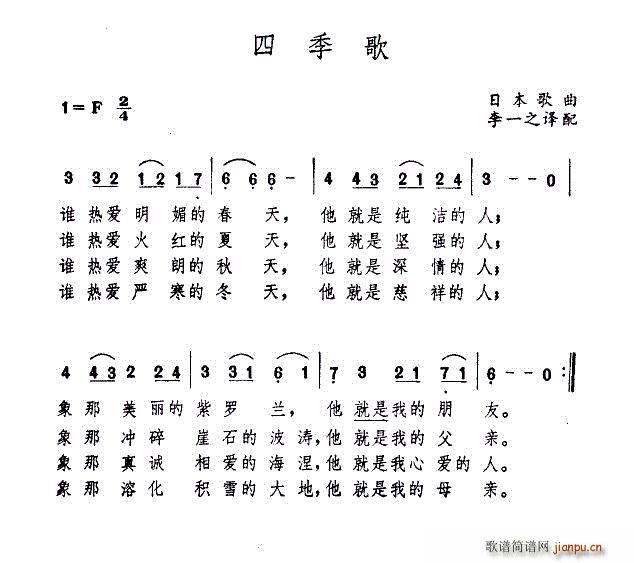 四季歌
1=F 2/4
日本歌曲
李一之译配
3 32 12 17 | 6 6 6 - | 4 43 21 24 | 3 - - 0 |
谁热爱明媚的春天，他就是纯洁的人；
谁热爱火红的夏天，他就是坚强的人；
谁热爱爽朗的秋天，他就是深情的人；
谁热爱严寒的冬天，他就是慈祥的人；
4 43 2 24 | 3 331 6 1 | 7 3 21 71 | 6 - - 0 :||
象那美丽的紫罗兰，他就是我的朋友。
象那冲碎崖石的波涛，他就是我的父亲。
象那真诚相爱的海涅，他就是我心爱的人。
象那溶化积雪的大地，他就是我的母亲。
歌谱简谱网
jianpu.cn